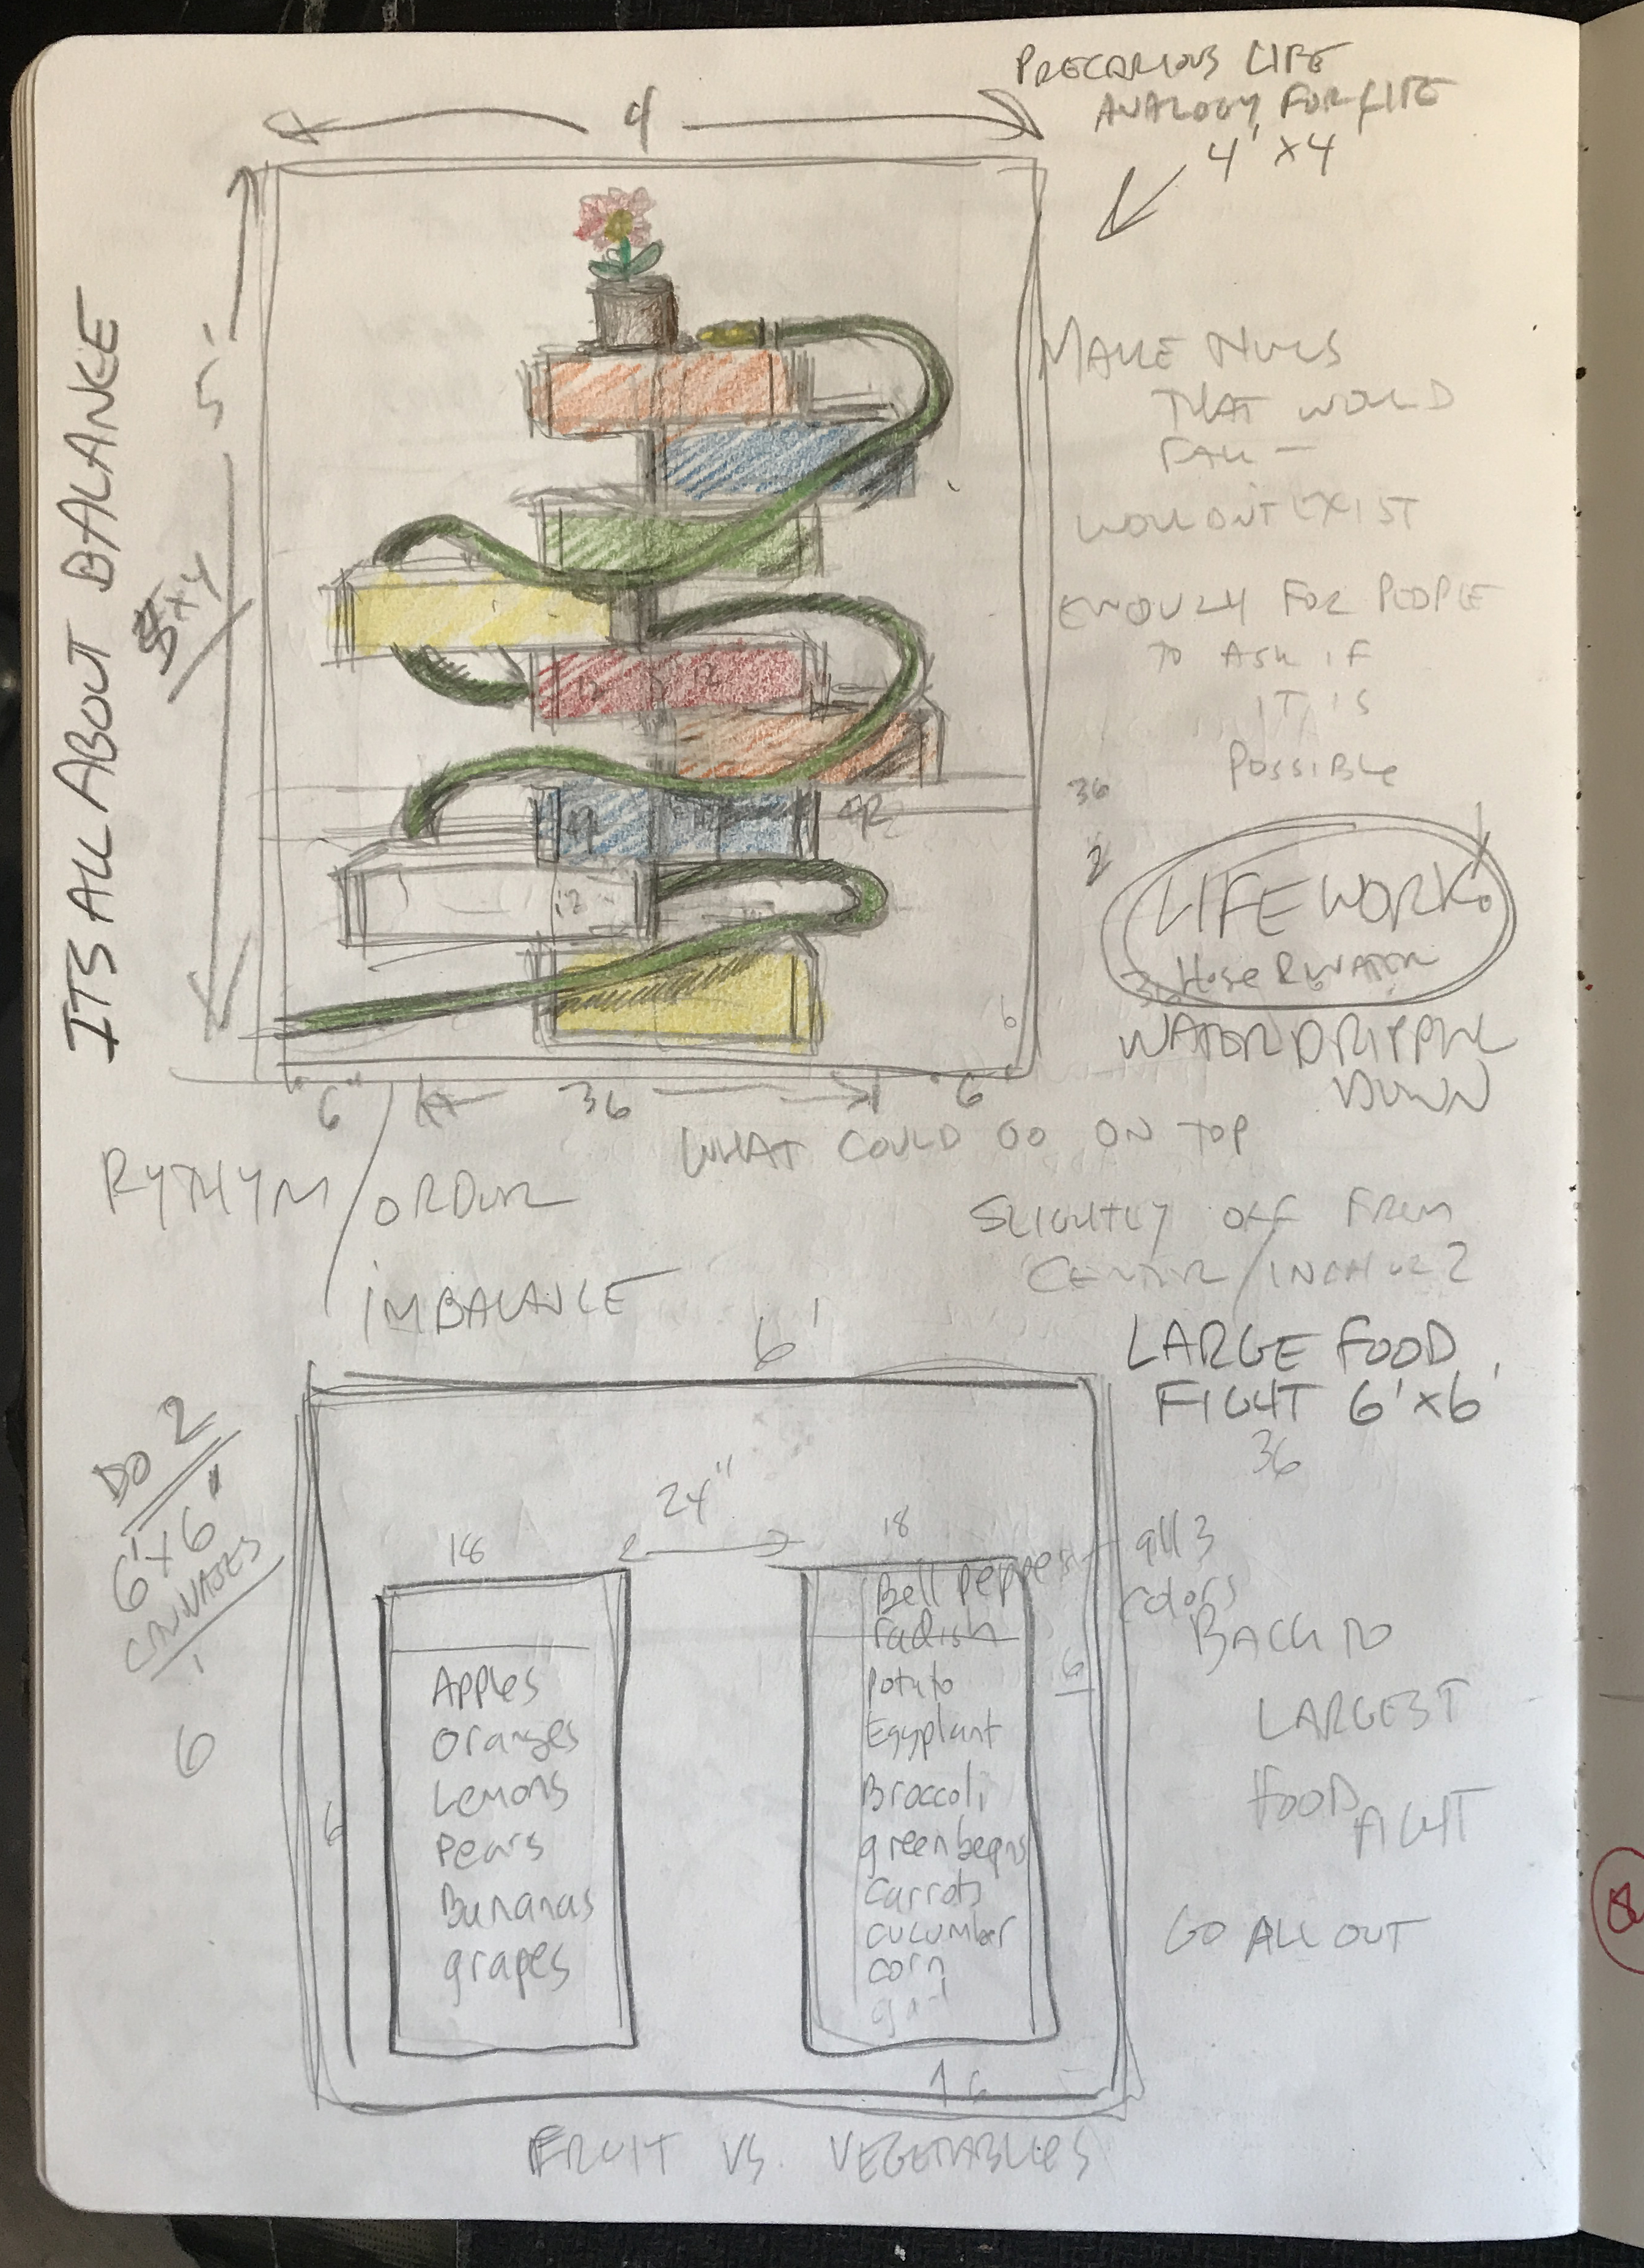 PRECARIOUS LIFE
ANALOGY FOR LIFE
4' x 4
4
ITS ALL ABOUT BALANCE
5'
5 x 4
THAT WOULD
FALL -
WOULDNT EXIST
ENOUGH FOR PEOPLE
TO ASK IF
IT IS
POSSIBLE
36
2
12
12
12
LIFE WORK
Hose
WATER DRIPPING
DOWN
6
6"
36
6"
WHAT COULD GO ON TOP
RYTHYM / ORDER
IMBALANCE
SLIGHTLY OFF FROM
CENTER / INCH OR 2
LARGE FOOD
FIGHT 6' x 6'
36
6'
DO 2
6' x 6"
CANVASES
6
18
24"
18
Bell pepper
all 3
colors
radish
Apples
Oranges
Lemons
Pears
Bananas
grapes
Potato
Eggplant
Broccoli
green beans
Carrots
cucumber
corn
6
6
6
BACK TO
LARGEST
FOOD
FIGHT
GO ALL OUT
FRUIT VS. VEGETABLES